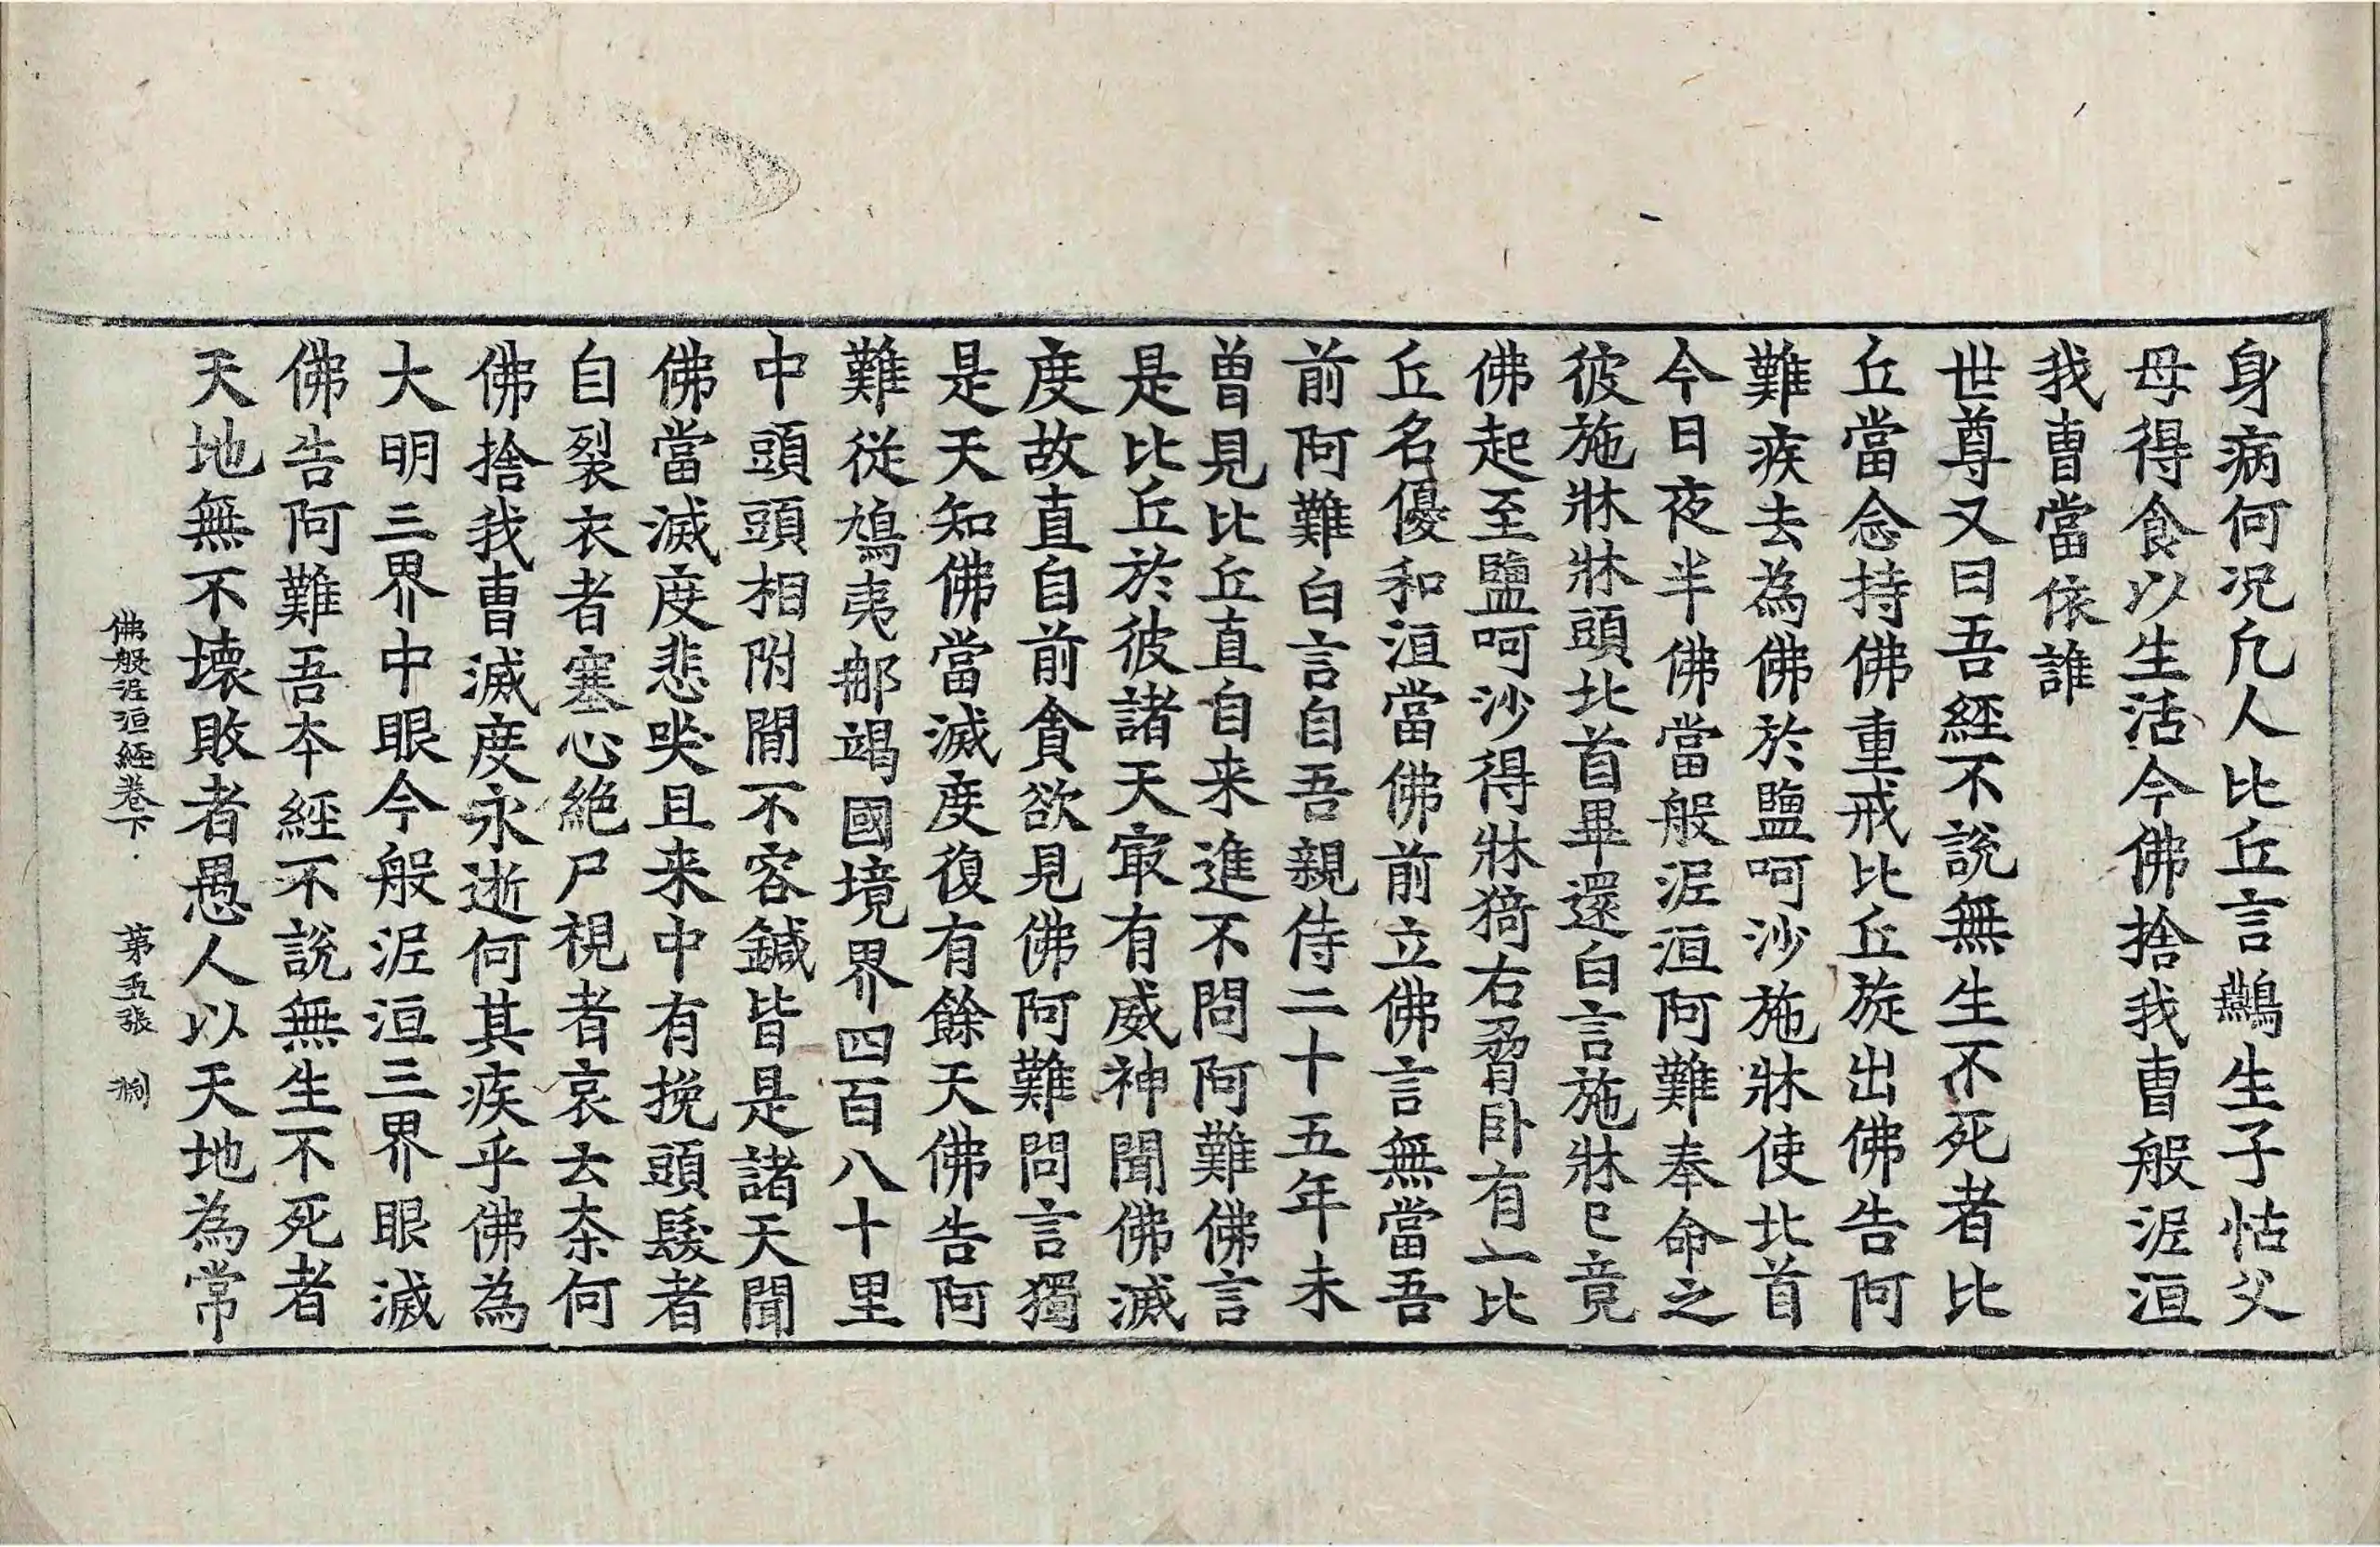 身病何況凢人比丘言鷰生子怙父
母得食以生活今佛捨我曹般泥洹
我曹當依誰
世尊又曰吾經不說無生不死者比
丘當念持佛重戒比丘旋出佛告阿
難疾去為佛於鹽呵沙施牀使北首
今日夜半佛當般泥洹阿難奉命之
彼施牀牀頭北首畢還白言施牀已竟
佛起至鹽呵沙得牀猗右脅卧有一比
丘名優和洹當佛前立佛言無當吾
前阿難白言自吾親侍二十五年未
曽見比丘直自来進不問阿難佛言
是比丘於彼諸天㝡有威神聞佛滅
度故直自前貪欲見佛阿難問言獨
是天知佛當滅度復有餘天佛告阿
難從鳩夷那竭國境界四百八十里
中頭頭相附閒不容鍼皆是諸天聞
佛當滅度悲哭且来中有挽頭髮者
自裂衣者塞心絶尸視者哀云柰何
佛捨我曹滅度永逝何其疾乎佛為
大明三界中眼今般泥洹三界眼滅
佛告阿難吾夲經不說無生不死者
天地無不壊敗者愚人以天地為常
佛般泥洹經卷下 第五張